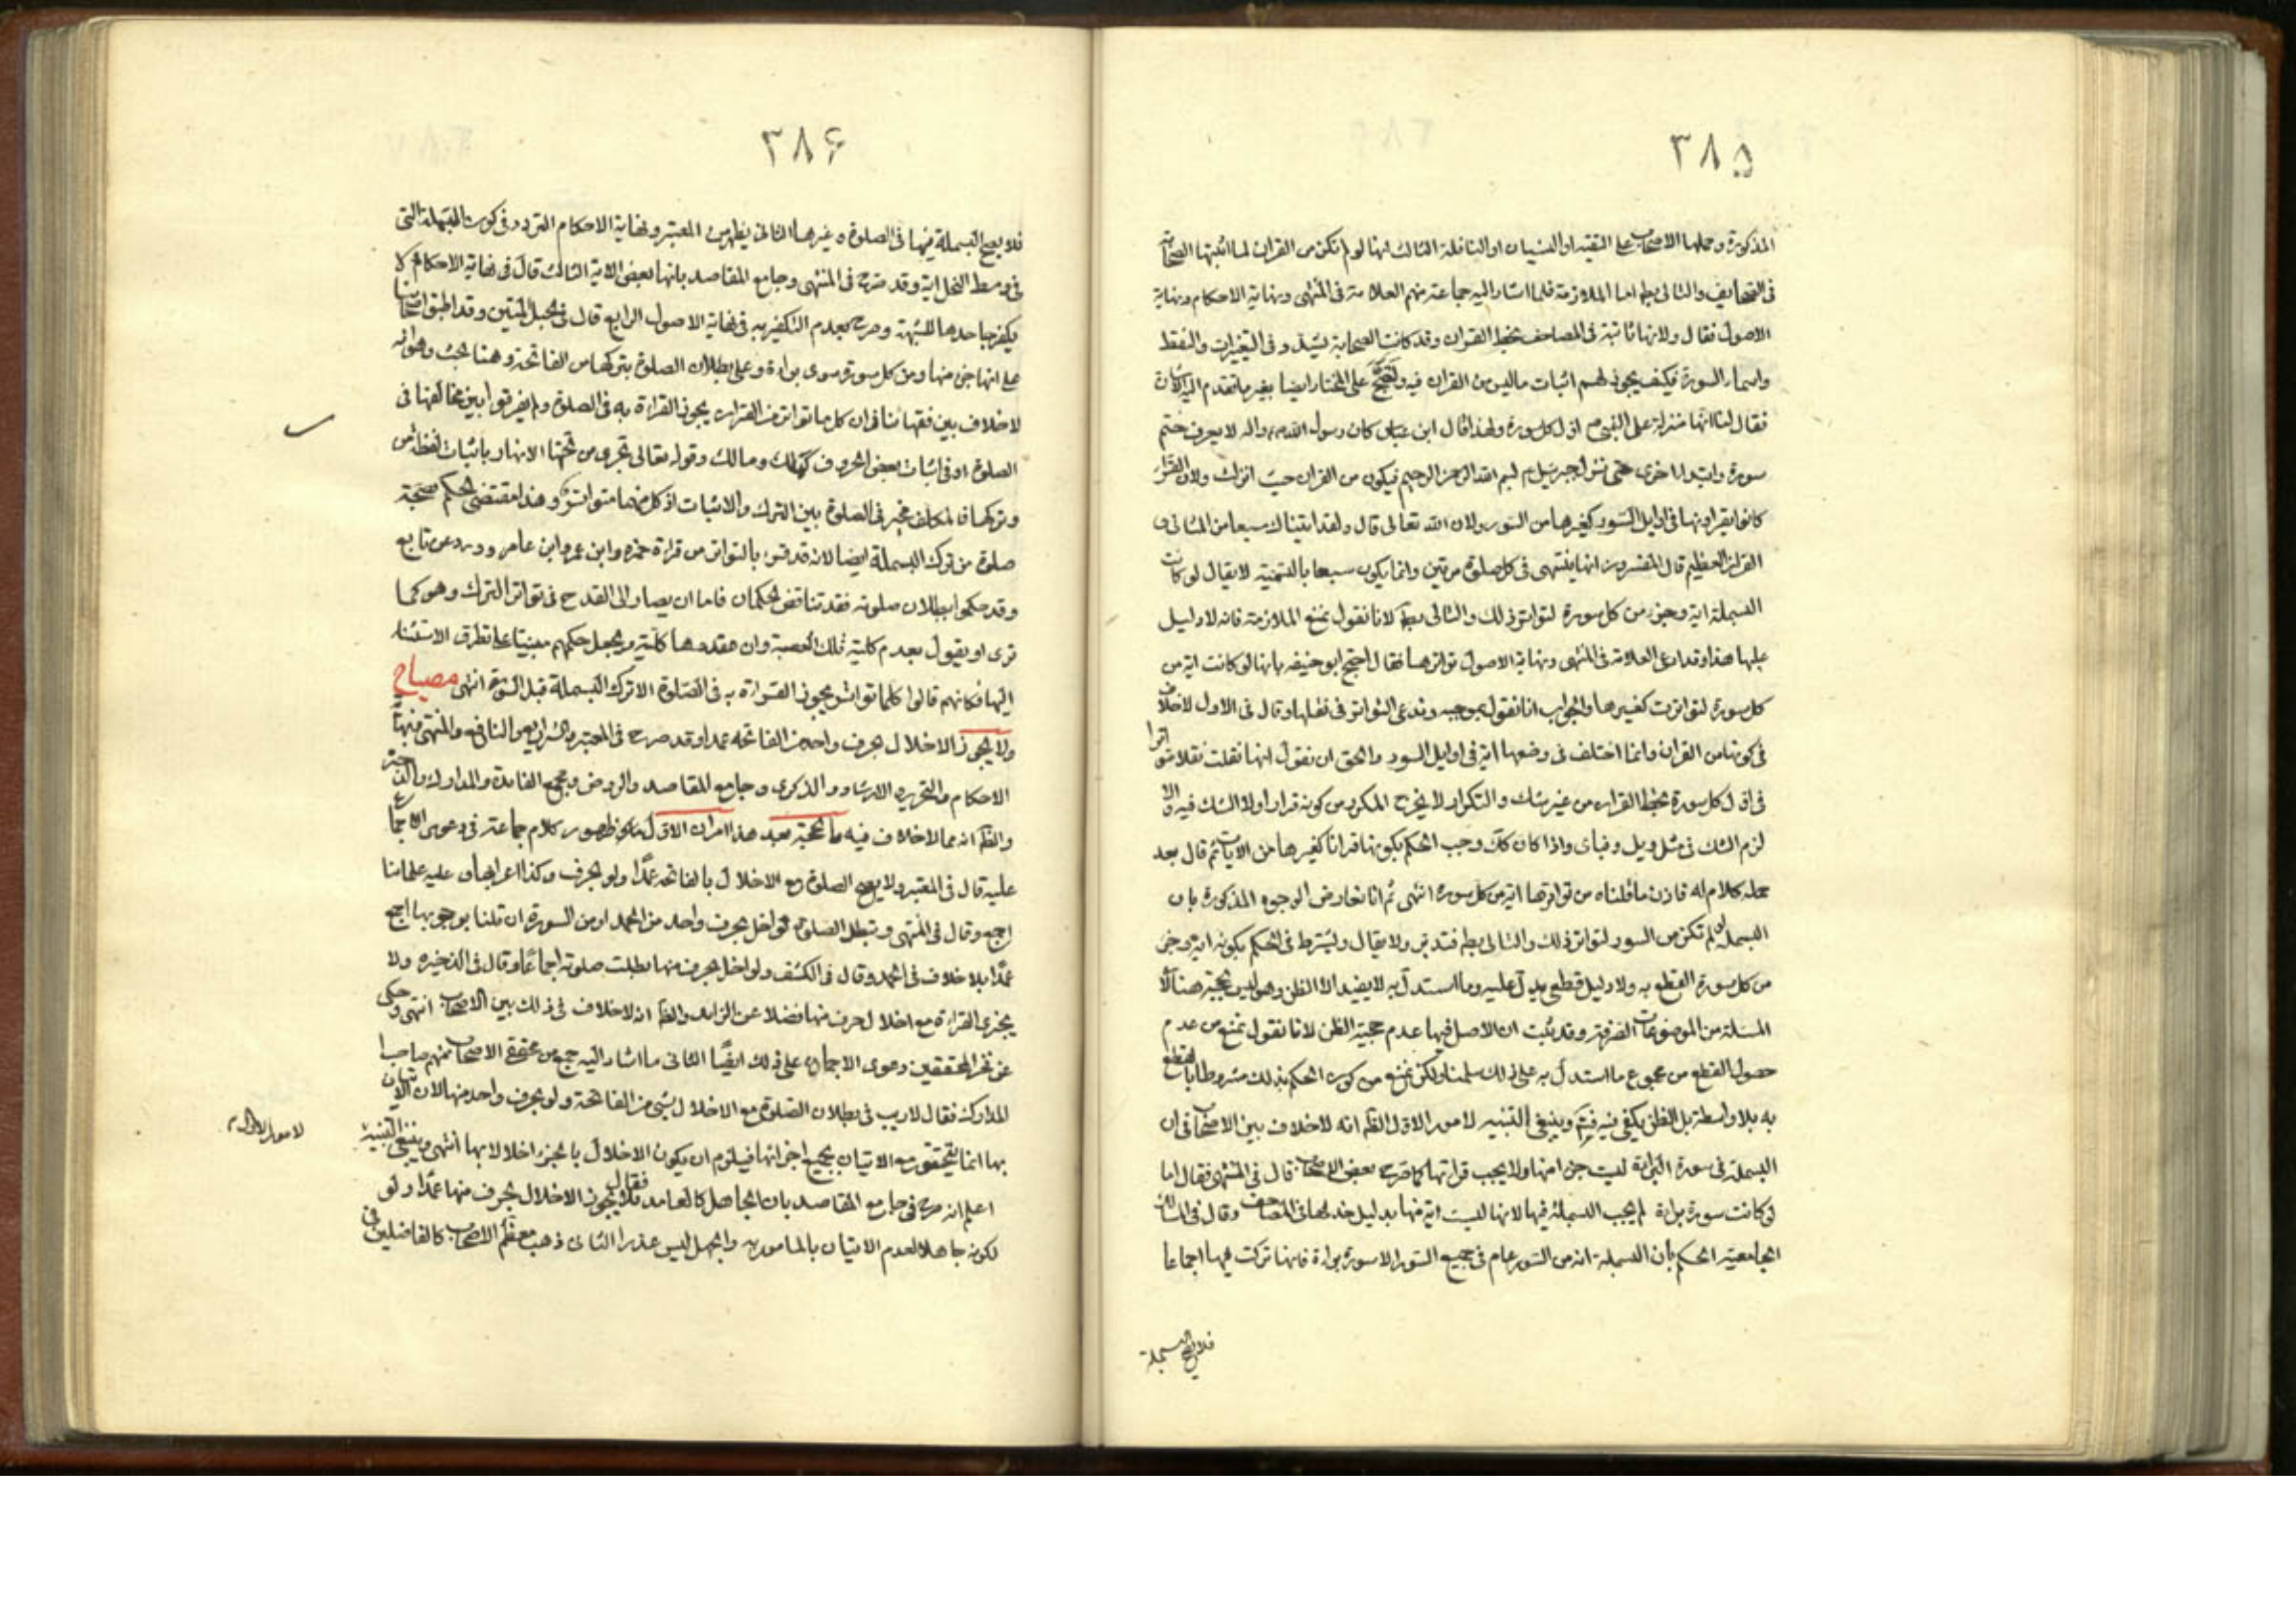 ٣٨٥
المذكورة وحملها الاصحاب على التقية او النسيان او النافلة الثالث انها لو لم تكن من القران لما اثبتها الصحابة
فى المصاحف والتالى بط اما الملازمة فلما اشار اليه جماعة منهم العلامة فى المنتهى ونهاية الاحكام ونهاية
الاصول فقال ولانها ثابتة فى المصاحف بخط القران وقد كانت الصحابة يشدد فى التغيرات والنقط
واسماء السورة فكيف يجوز لهم اثبات ماليس من القران فيه على المختار ايضا بغير ما تقدم
فقال لنا انها منزلة على النبى ص اول كل سورة ولهذا قال ابن عباس كان رسول الله ص واله لا يعرف ختم
سورة وابتداء اخرى حتى ينزل جبرئيل ع بسم الله الرحمن الرحيم فيكون من القران حيث انزلت ولان القراء
كانوا يقرؤنها فى اوايل السور كغيرها من السور ولان الله تعالى قال ولقد اتيناك سبعا من المثانى و
القران العظيم قال المفسرون انها يثنى فى كل صلوة مرتين وانما يكون سبعا بالتسمية لا يقال لو كانت
البسملة اية وجزء من كل سورة لتواتر ذلك والتالى بط لانا نقول نمنع الملازمة فانه لا دليل
عليها هذا وقد ادعى العلامة فى المنتهى ونهاية الاصول تواترها فقال احتج ابو حنيفه بانها لو كانت اية من
كل سورة لتواترت كغيرها والجواب انا نقول بموجبه وندعى التواتر فى نقلها وقال فى الاول لا خلاف
فى كونها من القران وانما اختلف فى وضعها اية فى اوايل السور والحق ان نقول انها نقلت نقلا متواترا
فى اول كل سورة بخط القران من غير شك والتكرار لا يخرج المكرر من كونه قرانا ولا الشك فيه والا
لزم الشك فى مثل ويل وفباى واذا كان كك وجب الحكم بكونها قرانا كغيرها من الايات ثم قال بعد
جملة كلام له فاذن ما قلناه من تواترها اية من كل سورة انتهى ثم انا نعارض الوجوه المذكورة بان
البسملة لو لم تكن من السور لتواتر ذلك والتالى بط فتدبر ولا يقال ويشترط فى الحكم بكونه اية وجزء
من كل سورة القطع به ولا دليل قطعى يدل عليه وما استدل به لا يفيد الا الظن وهو ليس بحجة هنا لان
المسئلة من الموضوعات الصرفة وقد ثبت ان الاصل فيها عدم حجية الظن لانا نقول نمنع من عدم
حصول القطع من مجموع ما استدل به على ذلك سلمنا ولكن نمنع من كون الحكم بذلك مشروطا بالقطع
به بلا واسطة بل الظن يكفى فيه وينبغى التنبيه لامور الاول الظ انه لا خلاف بين الاصحاب فى ان
البسملة فى سورة البراية ليست جزء منها ولا يجب قرائتها كما صرح بعض الاصحاب قال فى المنتهى فقال اما
لو كانت سورة براءة لم يجب البسملة فيها لانها ليست اية منها بدليل حذفها فى المصاحف وقال فى
الجامعية الحكم بان البسملة اية من السور عام فى جميع السور الا سورة براءة فانها تركت فيها اجماعا
فلا يصح البسملة
٣٨۶
فلا يصح البسملة فيها فى الصلوة وغيرها الثانى يظهر من المعتبر ونهاية الاحكام التردد فى كون البسملة التى
فى وسط النحل اية وقد صرح فى المنتهى وجامع المقاصد بانها بعض الاية الثالث قال فى نهاية الاحكام لا
يكفر جاحدها للشبهة وصرح بعدم التكفير به فى نهاية الاصول الرابع قال فى حبل المتين وقد اطبق اصحابنا
على انها جزء منها ومن كل سورة سوى براءة وعلى بطلان الصلوة بتركها من الفاتحة وهنا بحث وهو انه
لا خلاف بين فقهائنا فى ان كل ما تواتر من القران يجوز القراءة به فى الصلوة ولم يفرقوا بين تخالفها فى
الصلوة او فى اثبات بعض الحروف كملك ومالك وقوله تعالى تجرى من تحتها الانهار باثبات لفظة من
وتركها فالمكلف مخير فى الصلوة بين الترك والاثبات اذ كل منهما متواتر وهذا مقتضى الحكم بصحة
صلوة من ترك البسملة ايضا لانه قد قرئ بالتواتر من قراءة حمزه وابن عمرو ابن عامر وورد عن نافع
وقد حكموا ببطلان صلوته فقد تناقض الحكمان فاما ان يصار الى القدح فى تواتر الترك وهو كما
ترى او يقول بعدم كلية تلك القضية وان عقدوها كلية ويجعل حكمهم مبنيا على تطرق الاستثناء
اليها فكانهم قالوا كلما تواتر يجوز القراءة به فى الصلوة الا ترك البسملة قبل السورة انتهى مصباح
ولا يجوز الاخلال بحرف واحد من الفاتحه عمدا وقد صرح فى المعتبر والشرايع والنافع والمنتهى ونهاية
الاحكام والتحرير والارشاد والذكرى وجامع المقاصد والروض ومجمع الفائدة والمدارك والذخيرة
والظ انه مما لا خلاف فيه ما الحجة بعد هذا امران الاول ظهور كلام جماعة فى دعوى الاجماع
عليه قال فى المعتبر ولا يصح الصلوة مع الاخلال بالفاتحه عمدا ولو بحرف وكذا اعرابها وعليه علمائنا
اجمع وقال فى المنتهى وتبطل الصلوة لو اخل بحرف واحد من الحمد او من السورة ان قلنا بوجوبها اجمع
عمدا بلا خلاف فى الحمد وقال فى الكشف ولو اخل بحرف منها بطلت صلوته اجماعا وقال فى الذخيره ولا
يجزى القراءة مع اخلال حرف منها فضلا عن الزايد والظ انه لا خلاف فى ذلك بين الاصحاب انتهى وحكى
عن فخر المحققين دعوى الاجماع على ذلك ايضا الثانى ما اشار اليه جمع من محققى الاصحاب منهم صاحب
المدارك فقال لا ريب فى بطلان الصلوة مع الاخلال بشئ من الفاتحة ولو بحرف واحد منها لان الاتيان
بها انما يتحقق مع الاتيان بجميع اجزائها فيلزم ان يكون الاخلال بالجزء اخلالا بها انتهى وينبغى التنبيه
لامور الاول
اعلم انه صرح فى جامع المقاصد بان الجاهل كالعامد فقال فلا يجوز الاخلال بحرف منها عمدا ولو
لكونه جاهلا لعدم الاتيان بالمامور به والجهل ليس عذرا الثانى ذهب معظم الاصحاب كالفاضلين فى